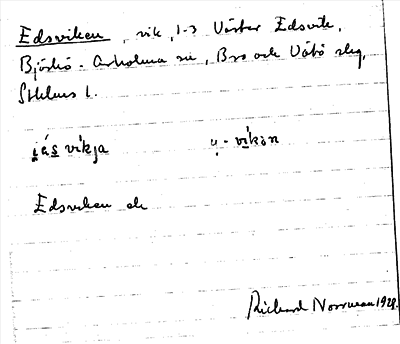 Edsviken, vik, 1-3 Väster Edsvik,
Björkö-Arholma sn, Bro och Vätö skg,
Sthlms l.
i̯ás víkja ų-víkən
Edsviken ek
Richard Norrman 1928.